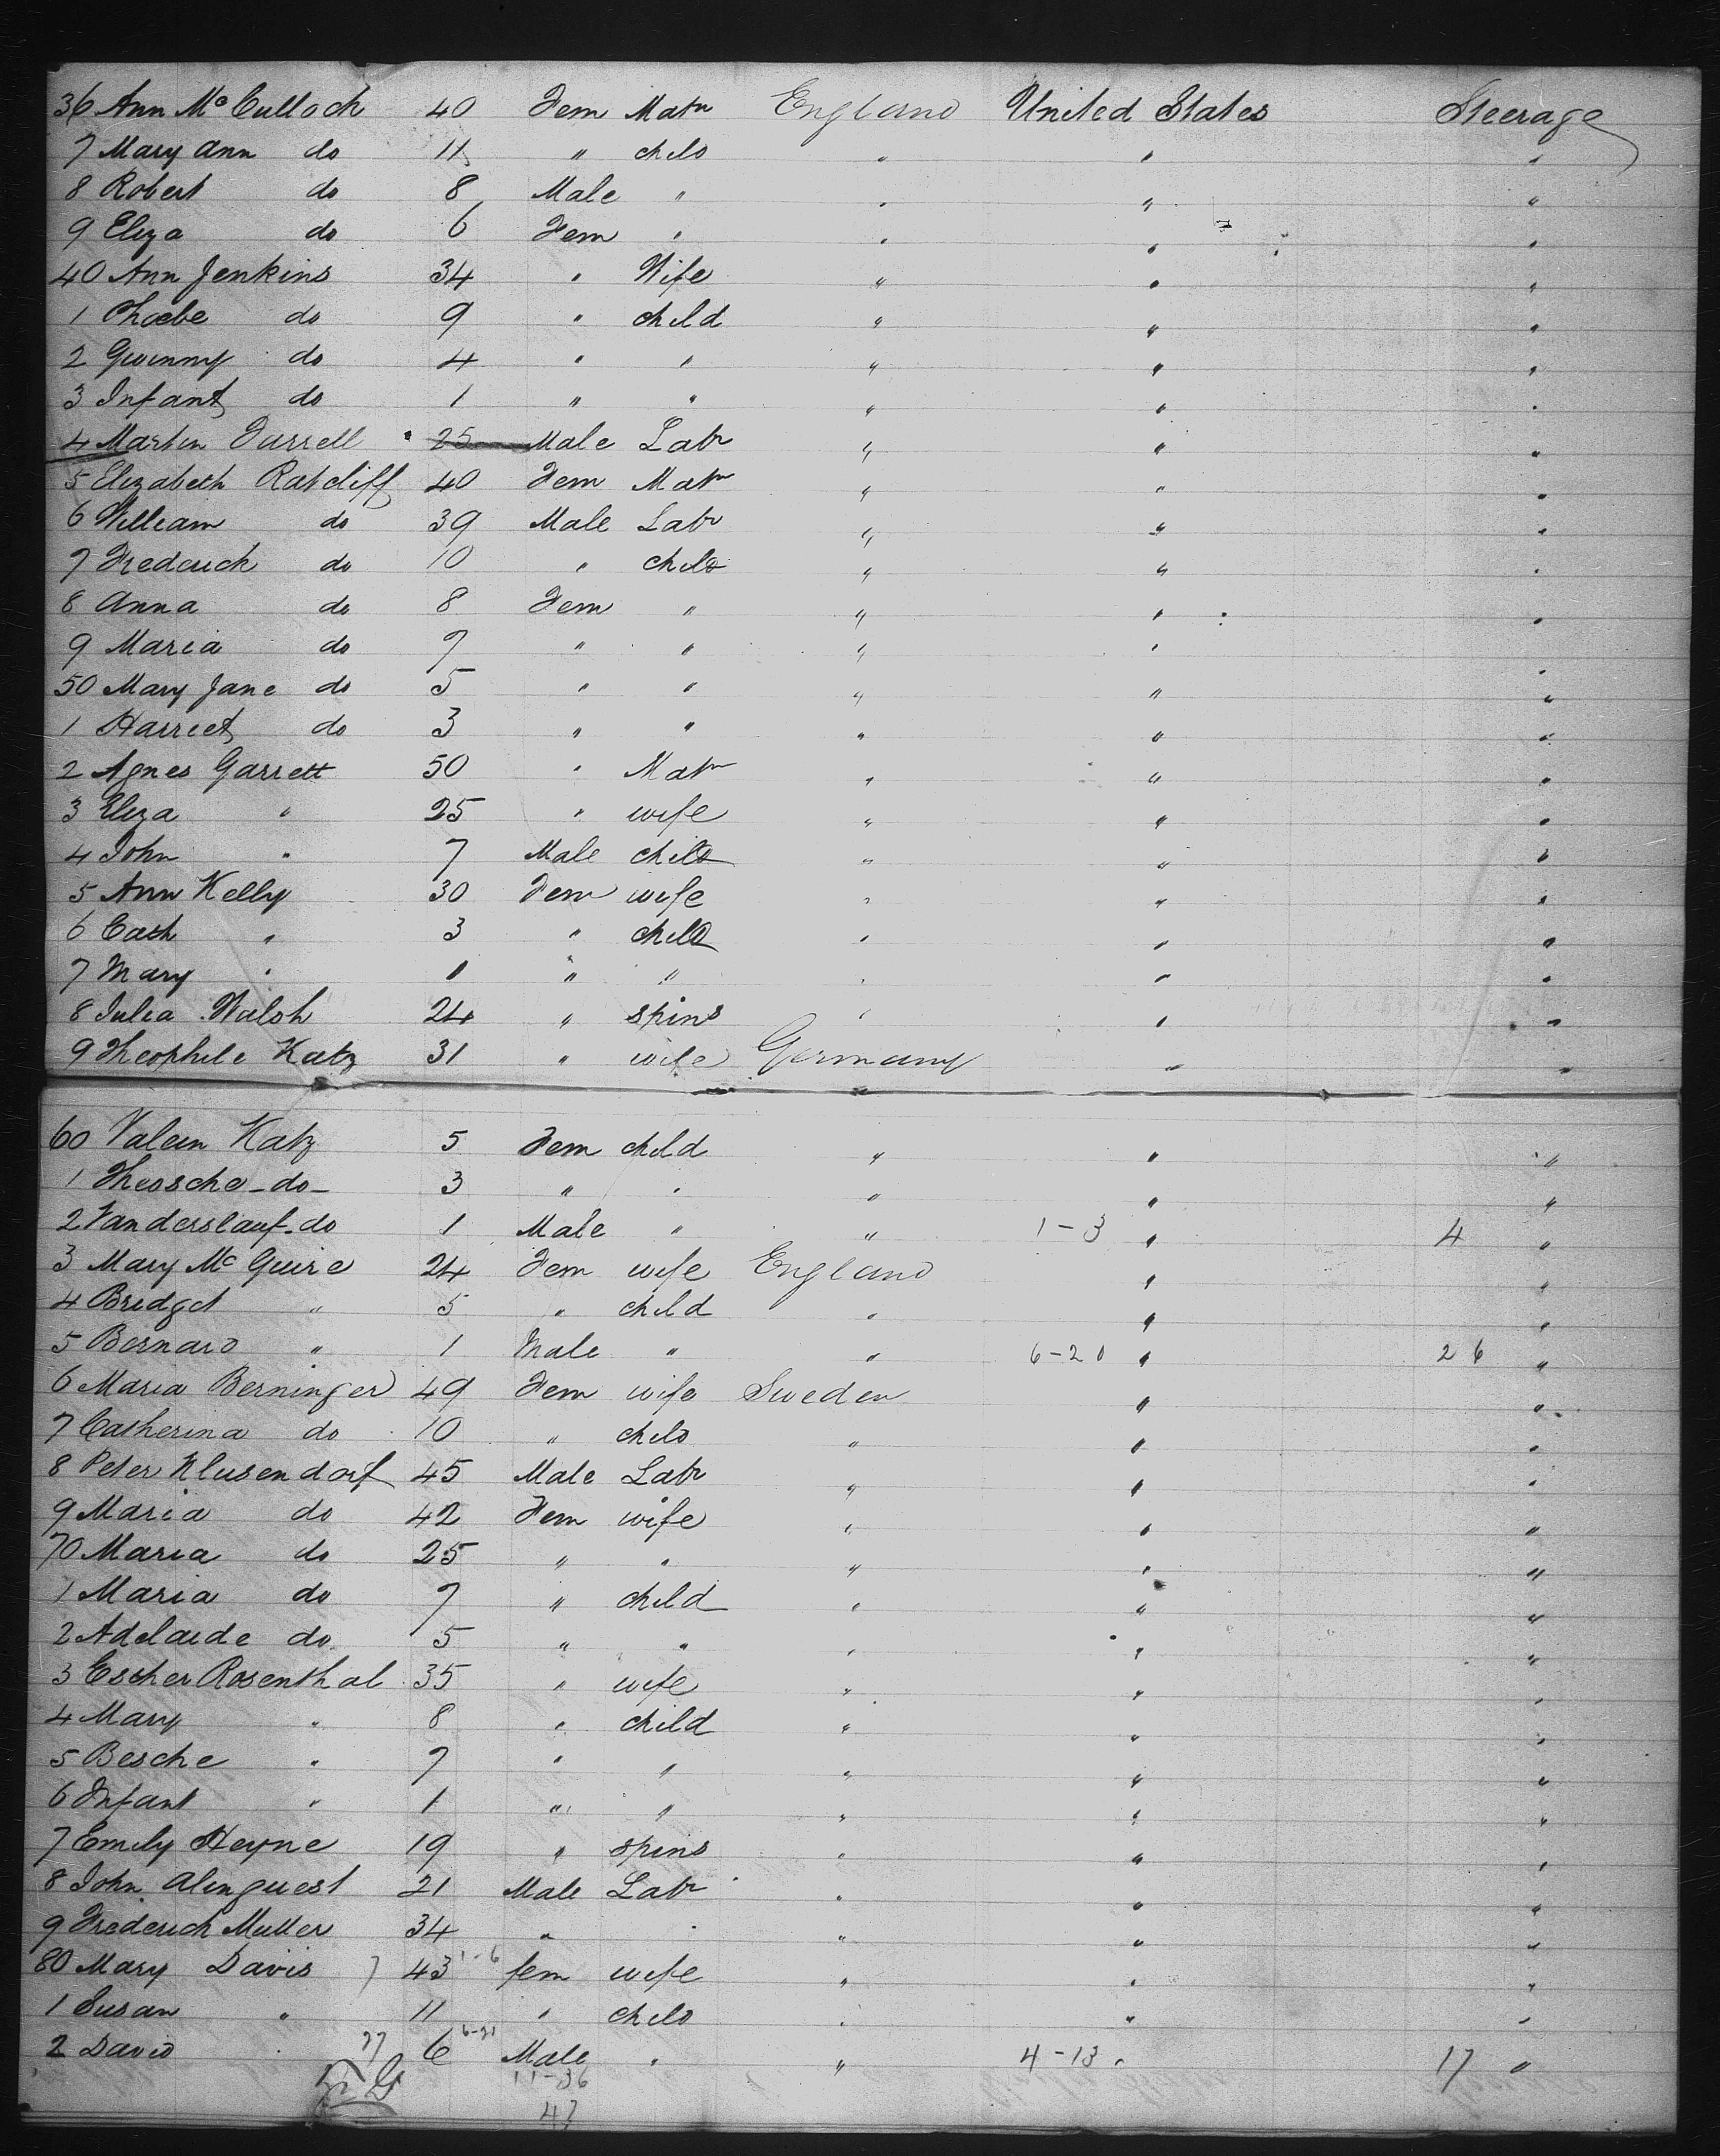 36 Ann McCulloch 40 Fem Matn England United States Steerage
7 Mary Ann do 11 " child " " "
8 Robert do 8 Male " " " "
9 Eliza do 6 Fem " " " "
40 Ann Jenkins 34 " Wife " " "
1 Phoebe do 9 " child " " "
2 Gwinny do 4 " " " " "
3 Infant do 1 " " " " "
4 Martin Farrell 25 Male Labr " " "
5 Elizabeth Ratcliff 40 Fem Matn " " "
6 William do 39 Male Labr " " "
7 Frederick do 10 " child " " "
8 Anna do 8 Fem " " " "
9 Maria do 7 " " " " "
50 Mary Jane do 5 " " " " "
1 Harriet do 3 " " " " "
2 Agnes Garrett 50 " Matn " " "
3 Eliza " 25 " wife " " "
4 John " 7 Male child " " "
5 Ann Kelly 30 Fem wife " " "
6 Cath " 3 " child " " "
7 Mary " 1 " " " " "
8 Julia Walsh 24 " spins " " "
9 Theophile Katz 31 " wife Germany " "
60 Valein Katz 5 Fem child " " "
1 Theosche -do- 3 " " " " "
2 Vanderslauf -do 1 Male " " 1-3 " 4 "
3 Mary McGuire 24 Fem wife England " "
4 Bridget " 5 " child " " "
5 Bernard " 1 Male " " 6-20 " 26 "
6 Maria Berninger 49 Fem wife Sweden " "
7 Catherina do 10 " child " " "
8 Peter Klusendorf 45 Male Labr " " "
9 Maria do 42 Fem wife " " "
70 Maria do 25 " " " " "
1 Maria do 7 " child " " "
2 Adelaide do 5 " " " " "
3 Escher Rosenthal 35 " wife " " "
4 Mary " 8 " child " " "
5 Besche " 7 " " " " "
6 Infant " 1 " " " " "
7 Emily Heyne 19 " spins " " "
8 John Alenguest 21 Male Labr " " "
9 Frederich Muller 34 " " " " "
80 Mary Davis 7 43 1-6 fem wife " " "
1 Susan " 11 " child " " "
2 David " 77 6 6-21 Male " " 4-13 " 17 "
11-36
47